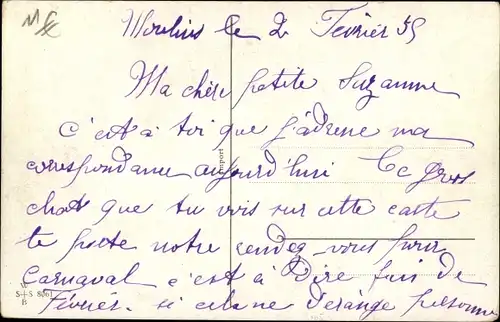 Moulins le 2 Fevrier 35
Ma chère petite Suzanne
c'est à toi que j'adresse ma
correspondance aujourd'hui Ce gros
chat que tu vois sur cette carte
te porte notre rendez-vous pour
Carnaval c'est à Dire fin de
Février. si cela ne dérange personne
Import
W
S+S 8061
B